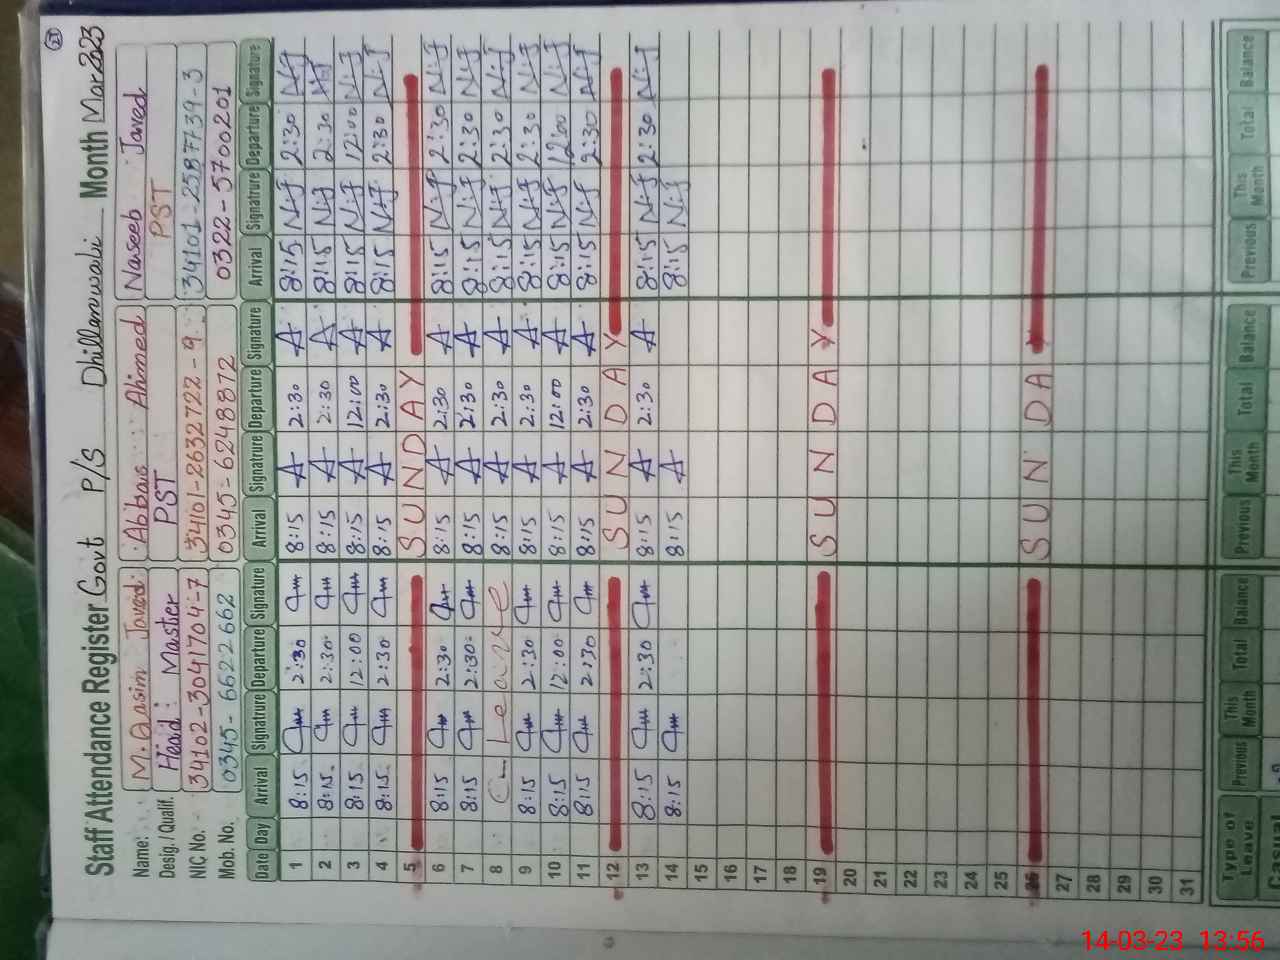 21
Staff Attendance Register Govt P/S Dhillanwali Month Mar 2023
Name: M. Qasim Javed Abbas Ahmed Naseeb Javed
Desig. / Qualif. Head Master PST PST
NIC No. 34102-3041704-7 34101-2632722-9 34101-2587739-3
Mob. No. 0345-6622662 0345-6248872 0322-5700201
Date Day Arrival Signature Departure Signature Arrival Signatrure Departure Signature Arrival Signatrure Departure Signature
1 8:15 2:30 8:15 A 2:30 A 8:15 NiJ 2:30 NiJ
2 8:15 2:30 8:15 A 2:30 A 8:15 NiJ 2:30 NiJ
3 8:15 12:00 8:15 A 12:00 A 8:15 NiJ 12:00 NiJ
4 8:15 2:30 8:15 A 2:30 A 8:15 NiJ 2:30 NiJ
5 SUNDAY
6 8:15 2:30 8:15 A 2:30 A 8:15 NiJ 2:30 NiJ
7 8:15 2:30 8:15 A 2:30 A 8:15 NiJ 2:30 NiJ
8 C- Leave 8:15 A 2:30 A 8:15 NiJ 2:30 NiJ
9 8:15 2:30 8:15 A 2:30 A 8:15 NiJ 2:30 NiJ
10 8:15 12:00 8:15 A 12:00 A 8:15 NiJ 12:00 NiJ
11 8:15 2:30 8:15 A 2:30 A 8:15 NiJ 2:30 NiJ
12 SUNDAY
13 8:15 2:30 8:15 A 2:30 A 8:15 NiJ 2:30 NiJ
14 8:15 8:15 A 8:15 NiJ
15
16
17
18
19 SUNDAY
20
21
22
23
24
25
26 SUNDAY
27
28
29
30
31
Type of Leave Previous This Month Total Balance Previous This Month Total Balance Previous This Month Total Balance
Casual
14-03-23 13:56